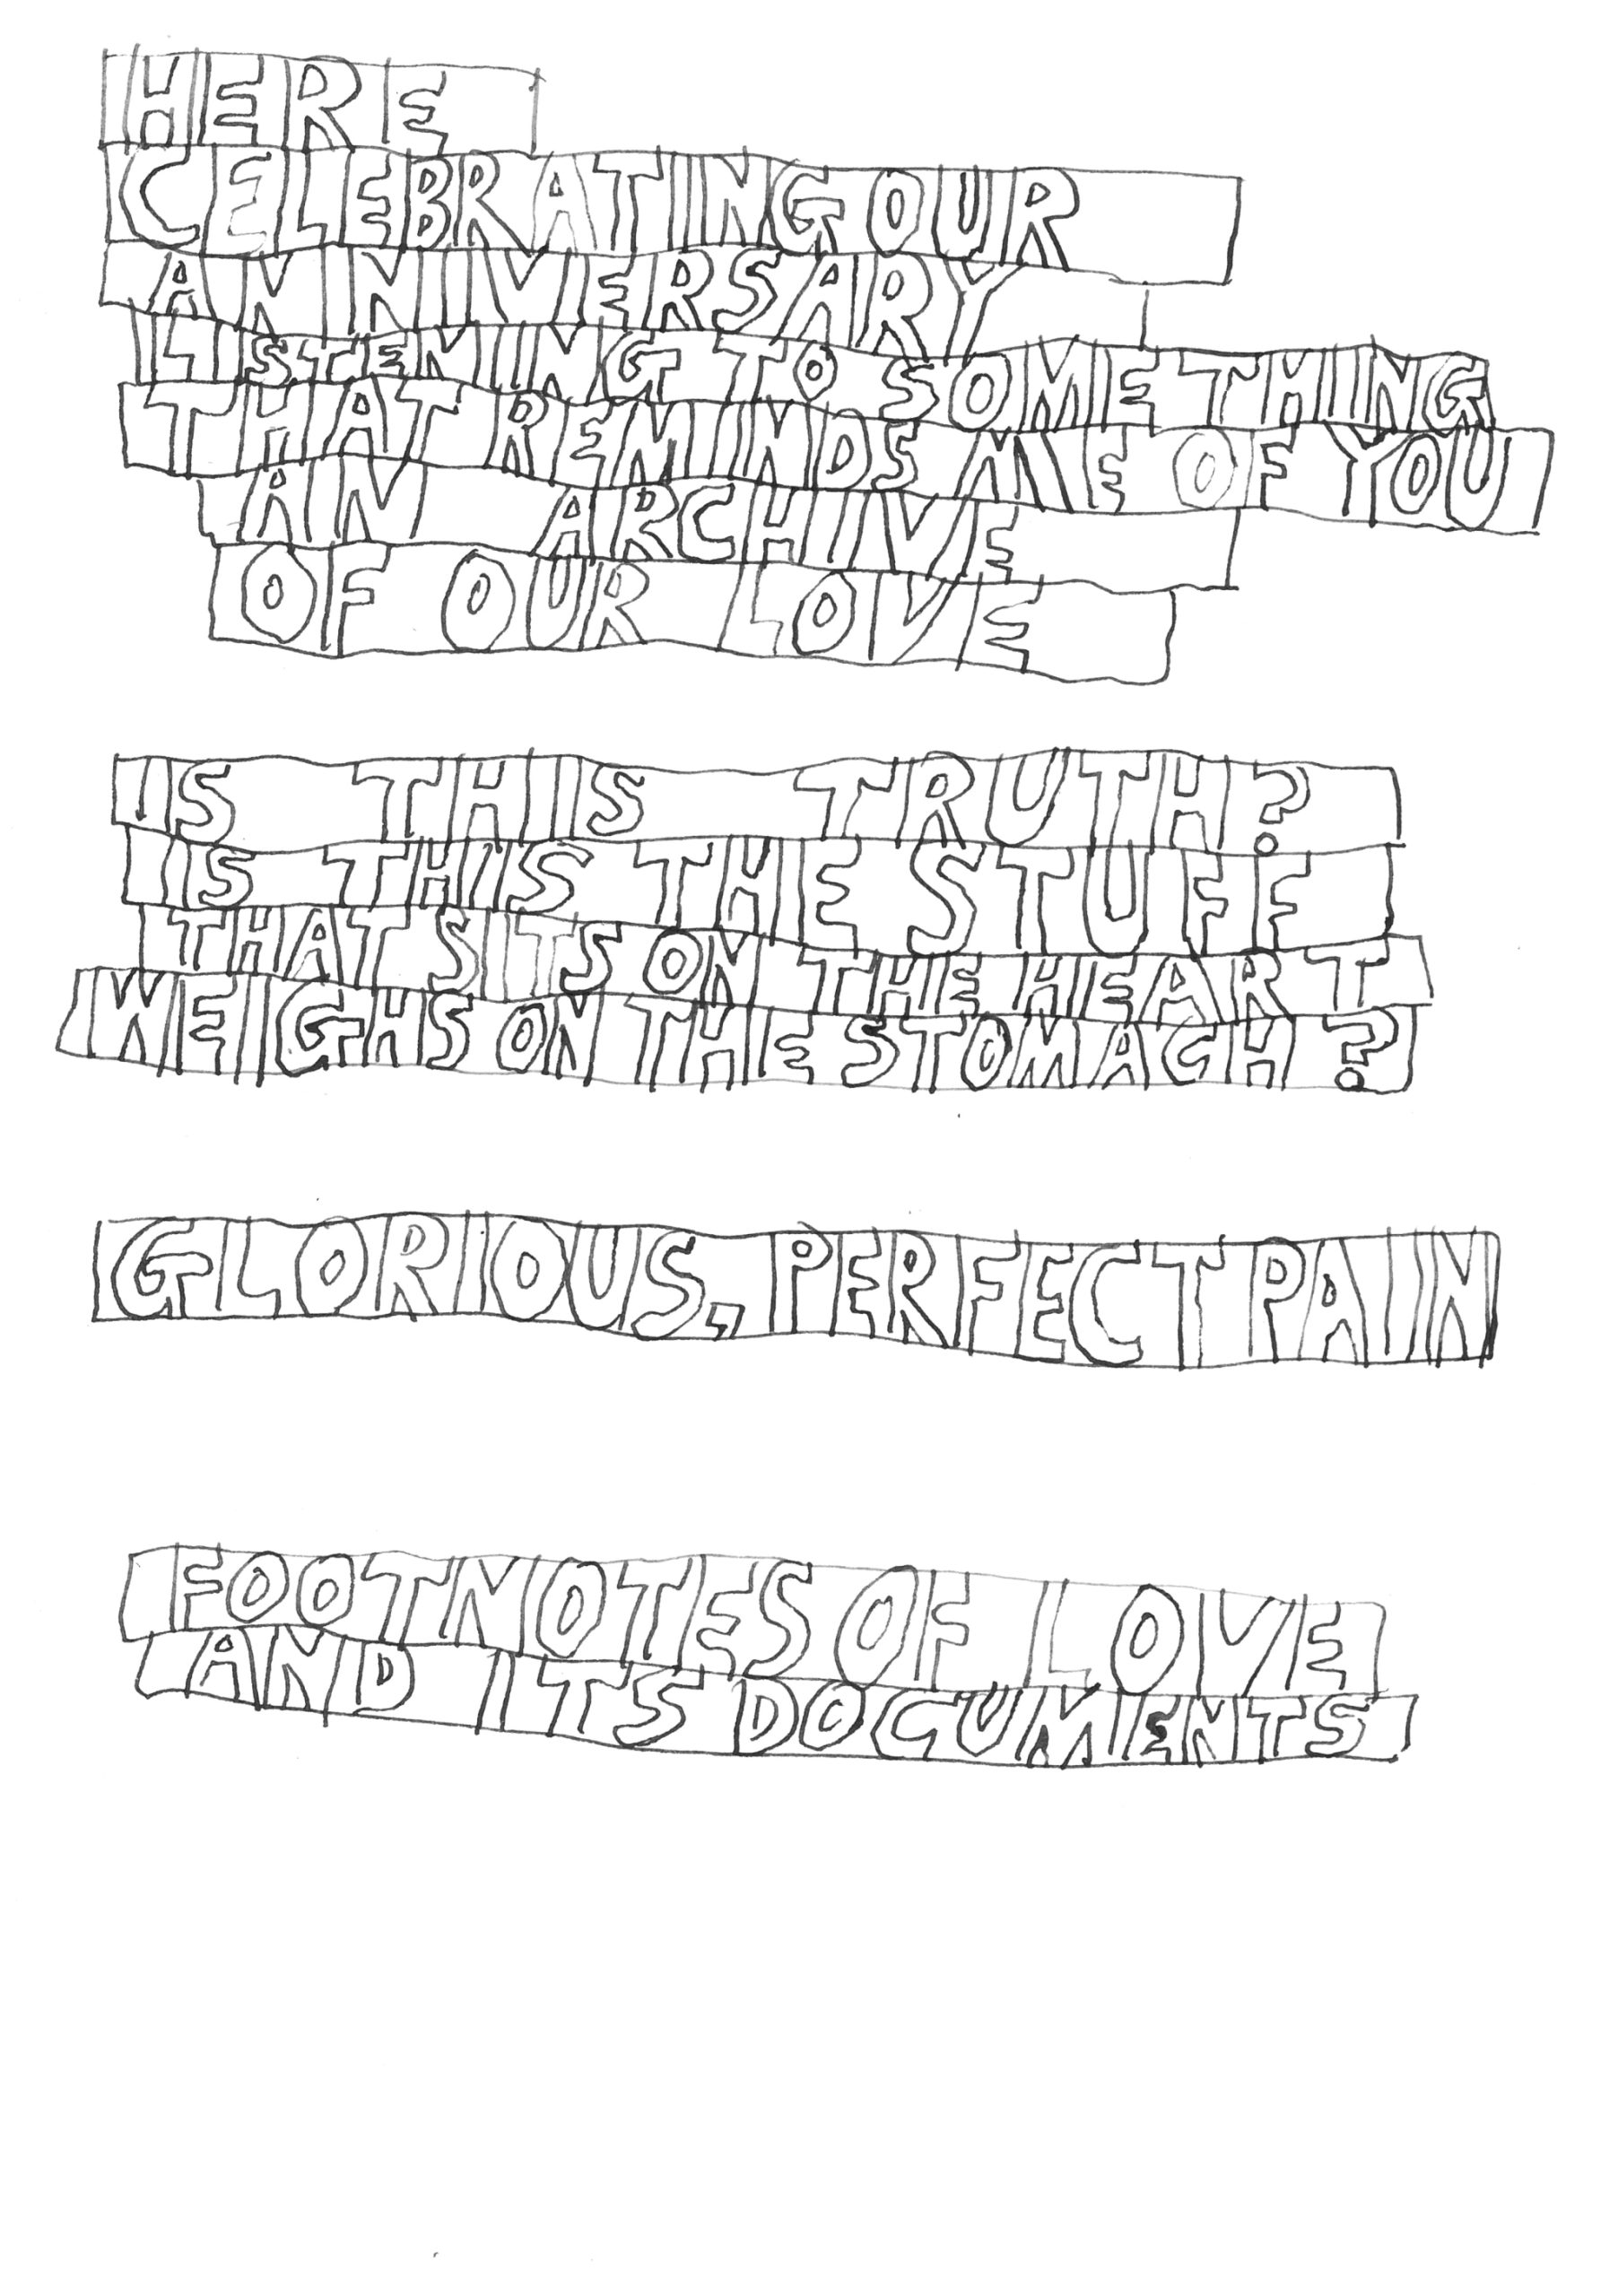 HERE
CELEBRATING OUR
ANNIVERSARY
LISTENING TO SOMETHING
THAT REMINDS ME OF YOU
AN ARCHIVE
OF OUR LOVE
IS THIS TRUTH?
IS THIS THE STUFF
THAT SITS ON THE HEART
WEIGHS ON THE STOMACH?
GLORIOUS, PERFECT PAIN
FOOTNOTES OF LOVE
AND ITS DOCUMENTS